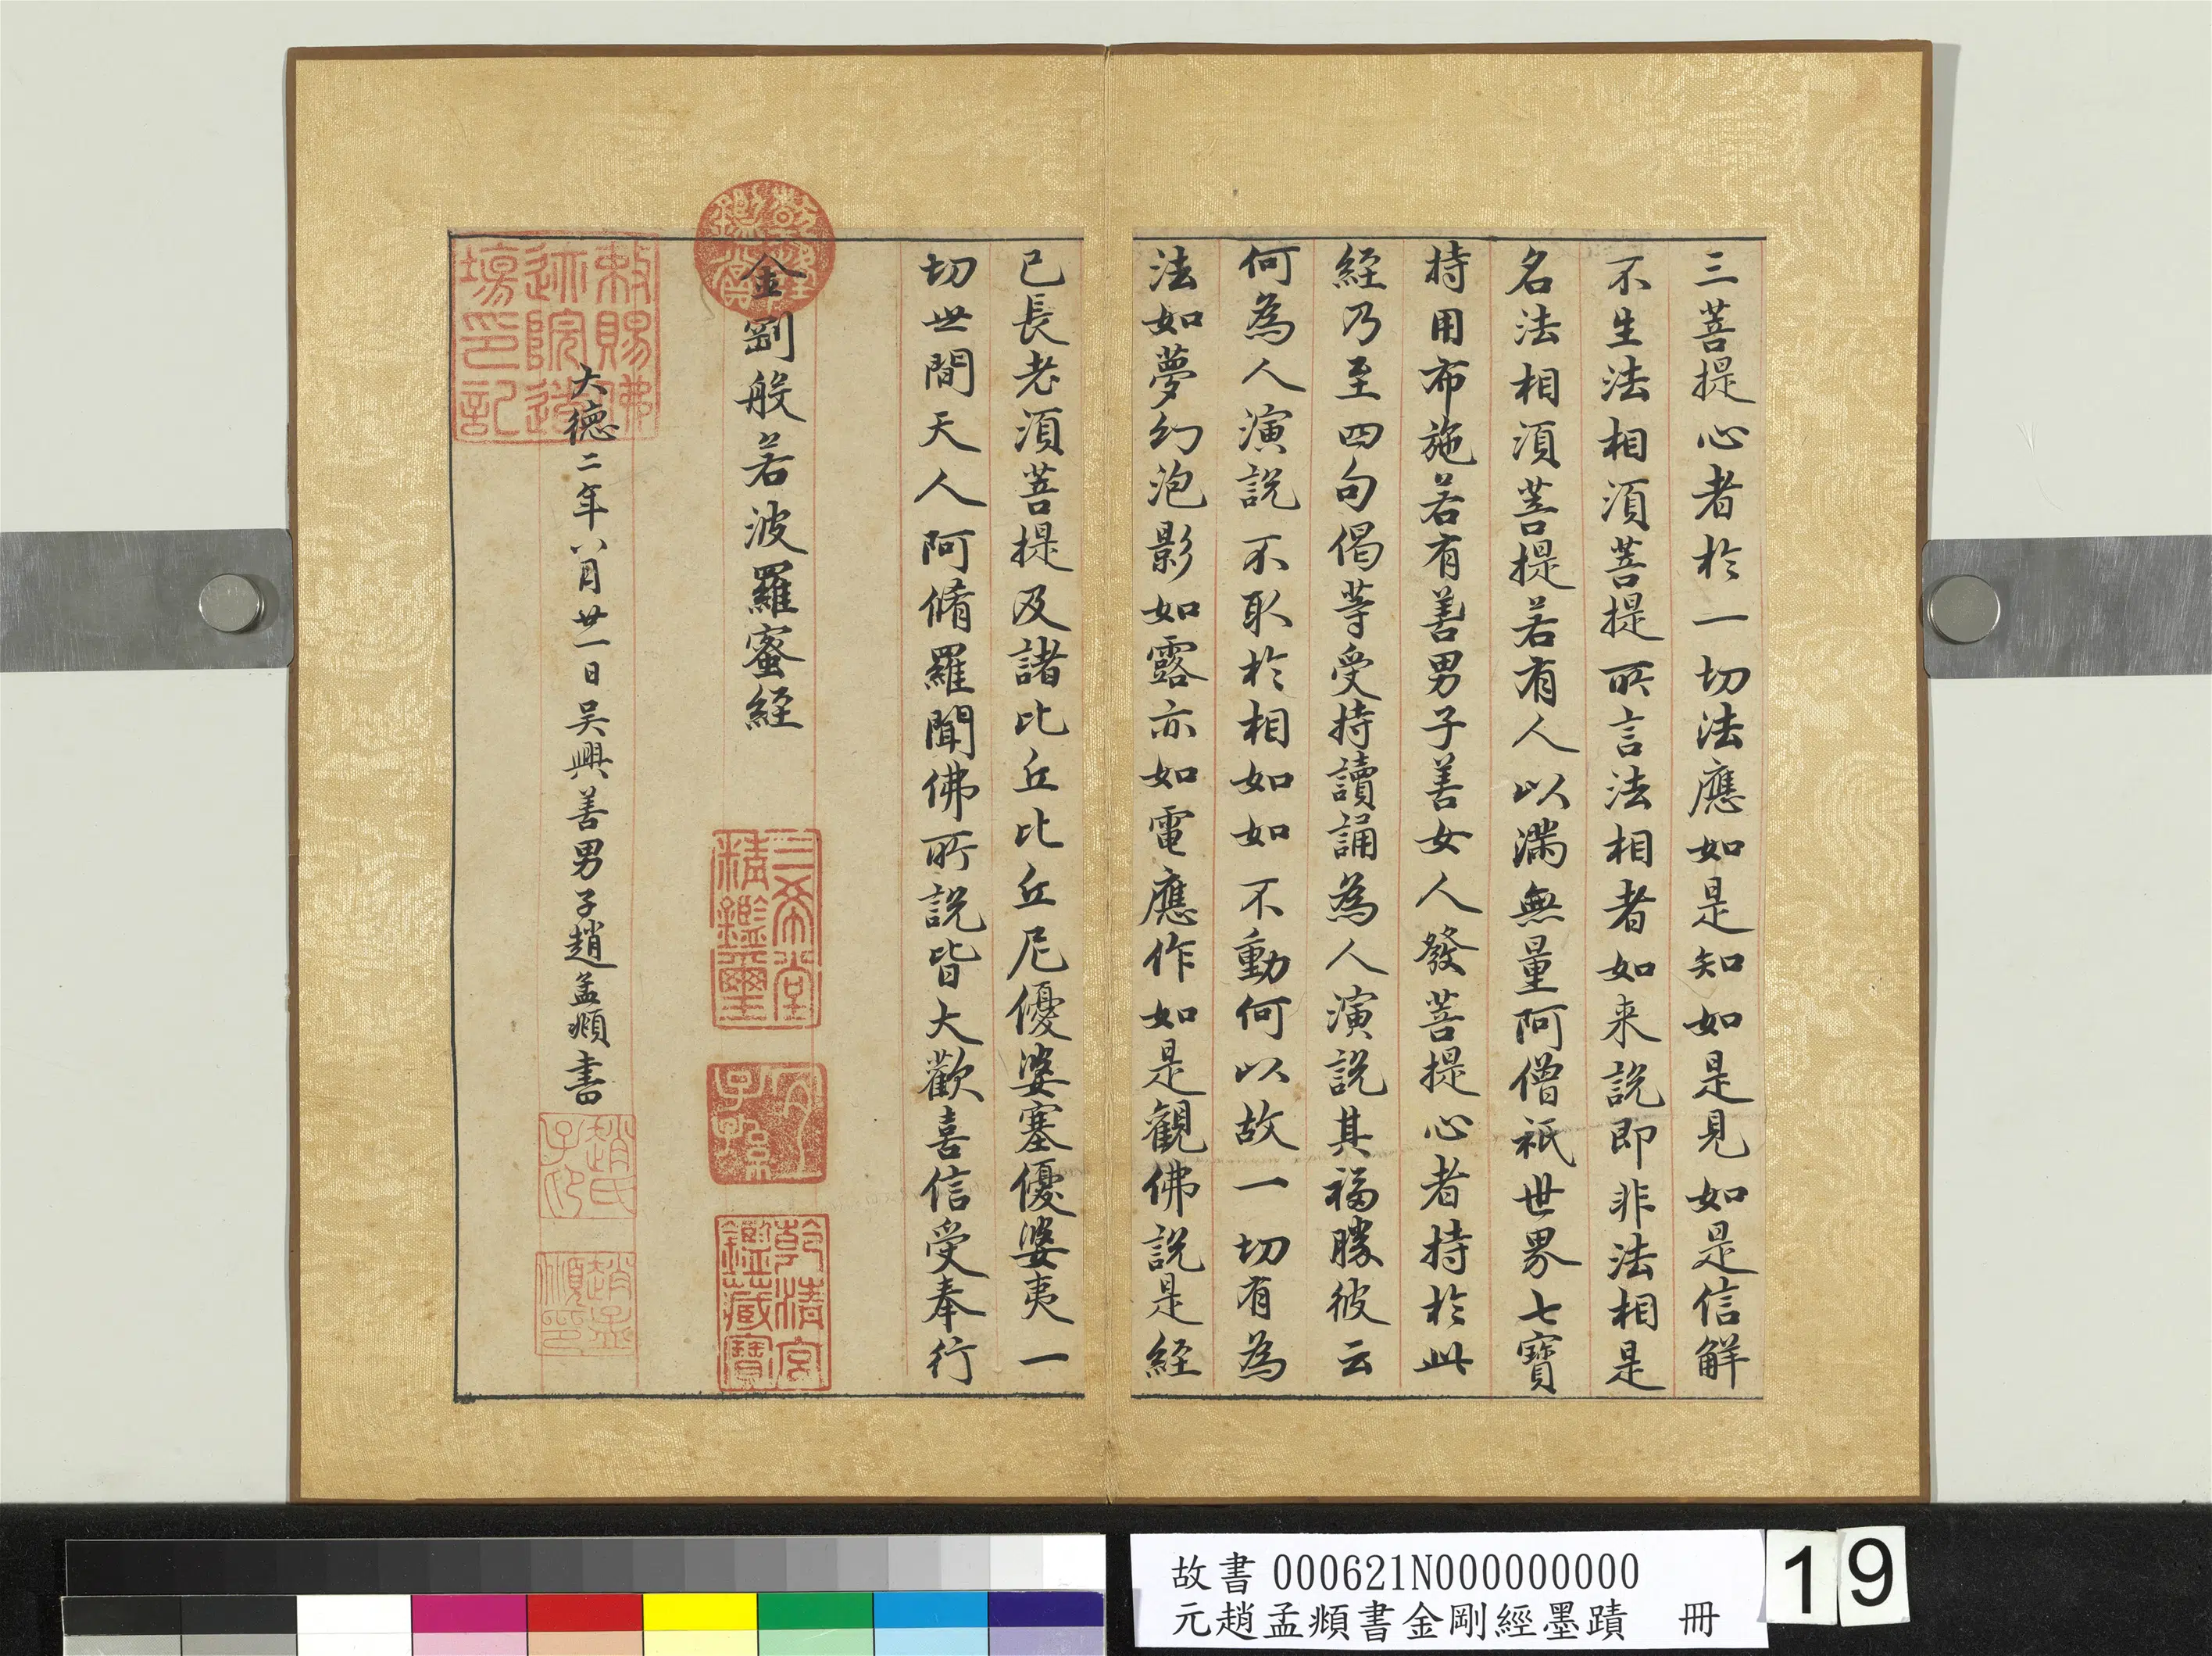 三菩提心者於一切法應如是知如是見如是信解
不生法相須菩提所言法相者如来說即非法相是
名法相須菩提若有人以滿無量阿僧祇世界七寶
持用布施若有善男子善女人發菩提心者持於此
經乃至四句偈等受持讀誦為人演說其福勝彼云
何為人演說不取於相如如不動何以故一切有為
法如夢幻泡影如露亦如電應作如是觀佛說是經
已長老須菩提及諸比丘比丘尼優婆塞優婆夷一
切世間天人阿脩羅聞佛所說皆大歡喜信受奉行
金剛般若波羅蜜經
乾隆鑑賞
三希堂精鑑璽
宜子孫
乾清宮鑑藏寶
大德二年八月廿一日吴興善男子趙孟頫書
敕賜佛迹院道場印記
趙氏子卬
趙孟頫印
故書 000621N000000000
元趙孟頫書金剛經墨蹟 冊
19